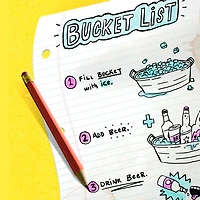 BUCKET LIST
1 FILL BUCKET
with ice.
2 ADD BEER.
+
3 DRINK BEER.